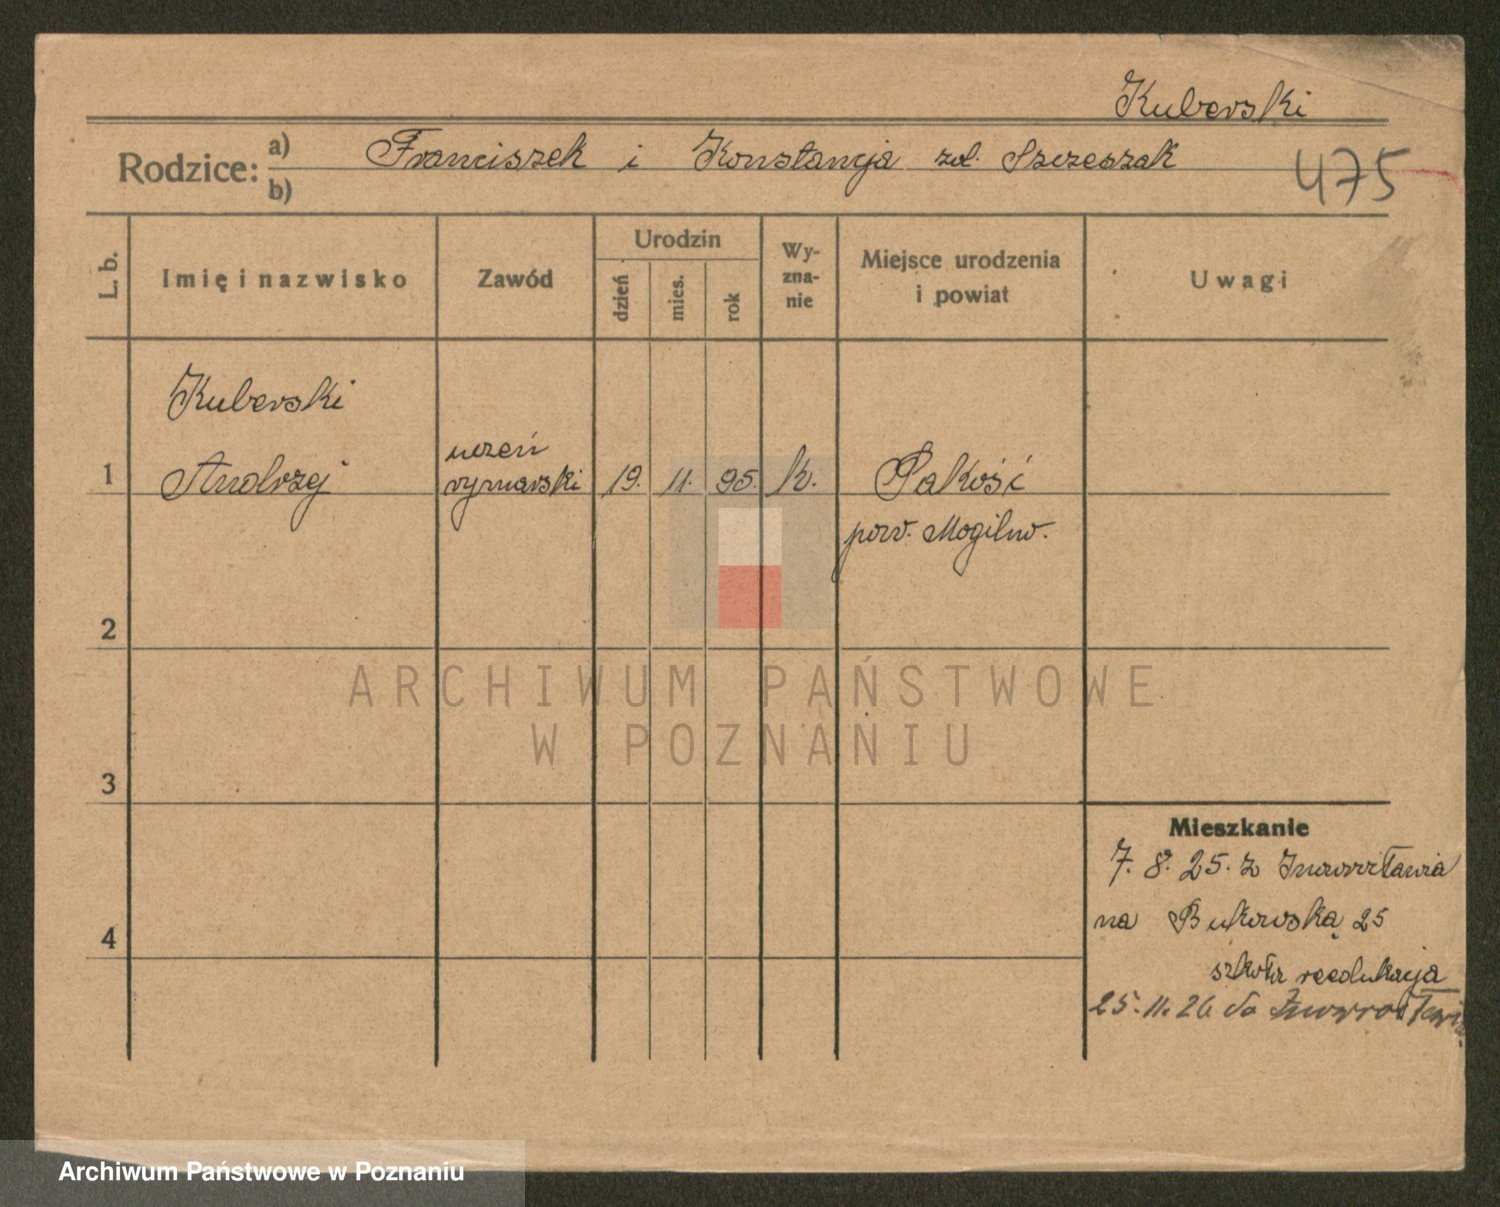 Kuberski
Rodzice: a) Franciszek i Konstancja zd. Szczeszak
b)
475
L. b.
Imię i nazwisko
Zawód
Urodzin
dzień
mies.
rok
Wy-
zna-
nie
Miejsce urodzenia
i powiat
Uwagi
Kuberski
1 Andrzej
uczeń
rymarski
19. 11. 95. k.
Pakość
pow. Mogilno.
2
3
4
Mieszkanie
7. 8. 25. z Inowrocławia
na Bukowską 25
szkoła reedukacja
25. 11. 26 do
ARCHIWUM PAŃSTWOWE
W POZNANIU
Archiwum Państwowe w Poznaniu